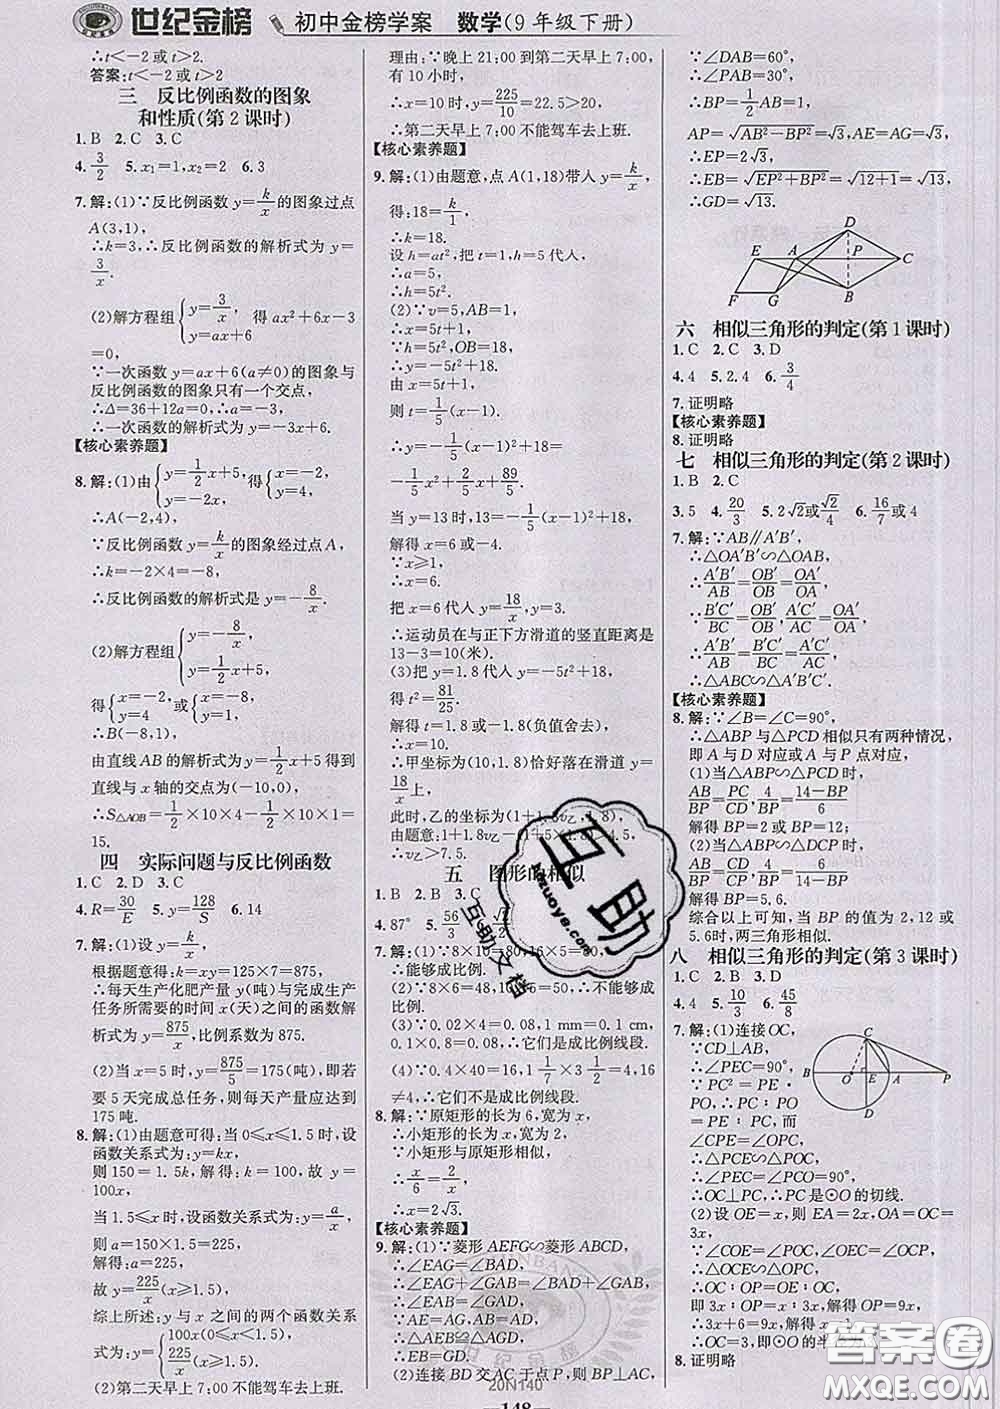 世纪金榜 初中金榜学案 数学(9年级下册)
∴t<-2或t>2.
答案:t<-2或t>2
三 反比例函数的图象
和性质(第2课时)
1.B 2.C 3.C
4.3/2 5.x₁=1,x₂=2 6.3
7.解:(1)∵反比例函数y=k/x的图象过点
A(3,1),
∴k=3,∴反比例函数的解析式为y=
3/x.
(2)解方程组{y=3/x, y=ax+6, 得ax²+6x-3
=0,
∵一次函数y=ax+6(a≠0)的图象与
反比例函数的图象只有一个交点,
∴Δ=36+12a=0,∴a=-3,
∴一次函数的解析式为y=-3x+6.
【核心素养题】
8.解:(1)由{y=1/2x+5, y=-2x, 得{x=-2, y=4,
∴A(-2,4),
∵反比例函数y=k/x的图象经过点A,
∴反比例函数的解析式是y=-8/x.
(2)解方程组{y=-8/x, y=1/2x+5,
得{x=-2, y=4 或{x=-8, y=1,
∴B(-8,1),
由直线AB的解析式为y=1/2x+5得到
直线与x轴的交点为(-10,0),
∴S△AOB=1/2×10×4-1/2×10×1=
15.
四 实际问题与反比例函数
1.C 2.D 3.C
4.R=30/E 5.y=128/S 6.14
7.解:(1)设y=k/x,
根据题意得:k=xy=125×7=875,
∴每天生产化肥产量y(吨)与完成生产
任务所需要的时间x(天)之间的函数解
析式为y=875/x,比例系数为875.
(2)当x=5时,y=875/5=175,即若要
要5天完成总任务,则每天产量应达到
175吨.
8.解:(1)由题意可得:当0≤x≤1.5时,设
函数关系式为:y=kx,
则150=1.5k,解得:k=100,故y=
100x,
当1.5≤x时,设函数关系式为:y=a/x,
则a=150×1.5,
解得:a=225,
故y=225/x(x≥1.5).
综上所述:y与x之间的两个函数关系
式为:{100x(0≤x≤1.5), y=225/x(x≥1.5).
(2)第二天早上7:00不能驾车去上班.
理由:∵晚上21:00到第二天早上7:00,
有10小时,
∴x=10时,y=225/10=22.5>20,
∴第二天早上7:00不能驾车去上班.
【核心素养题】
9.解:(1)由题意,点A(1,18)带入y=k/x,
得:18=k/1,
∴k=18.
设h=at²,把t=1,h=5代入,
∴a=5,
∴h=5t².
(2)∵v=5,AB=1,
∴x=5t+1,
∵h=5t²,OB=18,
∴y=-5t²+18.
由x=5t+1,
则t=1/5(x-1).
∴y=-1/5(x-1)²+18=
-1/5x²+2/5x+89/5.
当y=13时,13=-1/5(x-1)²+18,
解得x=6或-4.
∵x≥1,
∴x=6.
把x=6代入y=18/x,y=3.
∴运动员在与正下方滑道的竖直距离是
13-3=10(米).
(3)把y=1.8代入y=-5t²+18,
得t²=81/25.
解得t=1.8或-1.8(负值舍去),
∴x=10.
∴甲坐标为(10,1.8)恰好落在滑道y=
18/x上.
此时,乙的坐标为(1+1.8v乙,1.8).
由题意:1+1.8v乙-(1+5×1.8)>4.5,
∴v乙>7.5.
五 图形的相似
1.B 2.B 3.C
4.87° 5.56/3
7.解:(1)∵8×10=80,16×5=80,
∴能够成比例.
(2)∵8×6=48,10×5=50,∴不能够成
比例.
(3)∵0.02×4=0.08,1 mm=0.1 cm,
0.1×0.8=0.08,∴它们是成比例线段.
(4)∵0.4×40=16,1 1/3×3 1/2=
4,∴它们不是成比例线段.
8.解:∵原矩形的长为6,宽为x,
∴小矩形的长为x,宽为2.
∵小矩形与原矩形相似,
∴x/6=2/x,
∴x=2√3.
【核心素养题】
9.解:(1)∵菱形AEFG∽菱形ABCD,
∴∠EAG=∠BAD,
∴∠EAG+∠GAB=∠BAD+∠GAB,
∴∠EAB=∠GAD,
∵AE=AG,AB=AD,
∴△AEB≌△AGD,
∴EB=GD.
(2)连接BD交AC于点P,则BP⊥AC,
∵∠DAB=60°,
∴∠PAB=30°,
∴BP=1/2AB=1,
AP=√(AB²-BP²)=√3,AE=AG=√3,
∴EP=2√3,
∴EB=√(EP²+BP²)=√(12+1)=√13,
∴GD=√13.
D
E A P C
F G B
六 相似三角形的判定(第1课时)
1.C 2.C 3.D
4.4 5.2.4 6.3/4
7.证明略
【核心素养题】
8.证明略
七 相似三角形的判定(第2课时)
1.B 2.C
3.5 4.20/3 5.2√2或√2/4 6.16/7或4
7.解:∵AB∥A′B′,
∴△OA′B′∽△OAB,
∴A′B′/AB=OB′/OB=OA′/OA,
∵B′C′/BC=OB′/OB,A′C′/AC=OA′/OA,
∴A′B′/AB=B′C′/BC=A′C′/AC,
∴△ABC∽△A′B′C′.
【核心素养题】
8.解:∵∠B=∠C=90°,
∴△ABP与△PCD相似只有两种情况,
即A与D对应或A与P点对应,
(1)当△ABP∽△PCD时,
AB/PC=BP/CD,4/(14-BP)=BP/6
解得BP=2或BP=12;
(2)当△ABP∽△DCP时,
AB/CD=BP/PC,4/6=BP/(14-BP)
解得BP=5.6.
综合以上可知,当BP的值为2,12或
5.6时,两三角形相似.
八 相似三角形的判定(第3课时)
1.C 2.B 3.D
4.4 5.10/3 6.45/8
7.解:(1)连接OC,
∵CD⊥AB,
∴∠CEA=90°,
∵PC²=PE·
PO,∴PC/PO=PE/PC,
∠CPE=∠OPC,
∴△PCE∽△POC,
∴∠PEC=∠PCO=90°,
∴OC⊥PC,∴PC是⊙O的切线.
(2)设OE=x,则EA=2x,OA=OC=
3x,
∵∠COE=∠POC,∠OEC=∠OCP
∴△OCE∽△OPC,
∴OC∶OP=OE∶OC,
即3x∶OP=x∶3x,解得OP=9x,
∴3x+6=9x,解得x=1,
∴OC=3,即⊙O的半
8.证明略
C
B O E A P
D
互助
huzuoye.com
互助文档
世纪金榜
20N140
148
答案圈
MXQE.COM